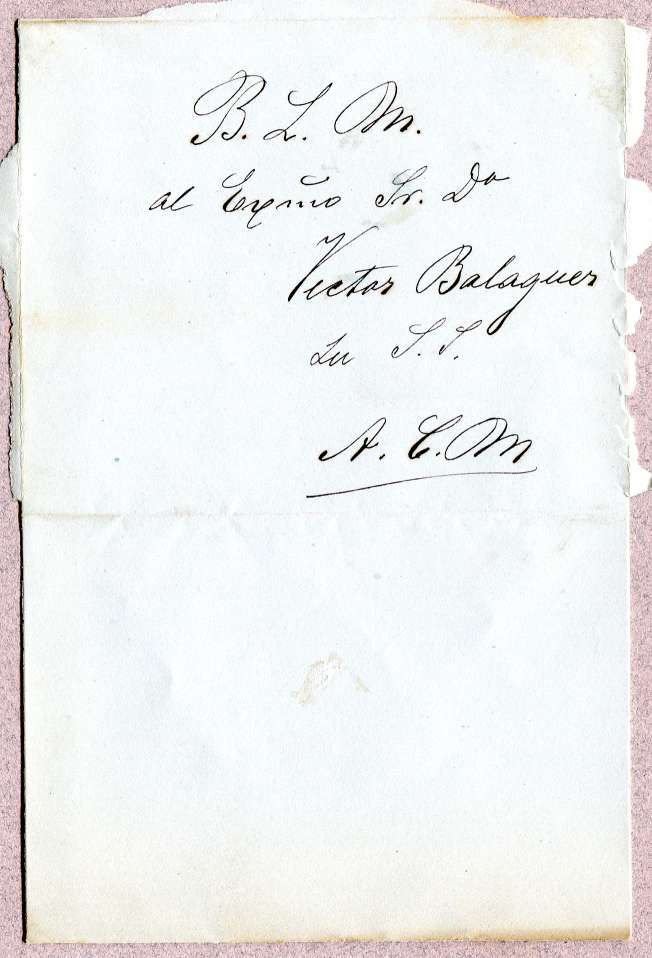 B. L. M.
al Exmo Sr. Dn
Victor Balaguer
su S. S.
A. C. M